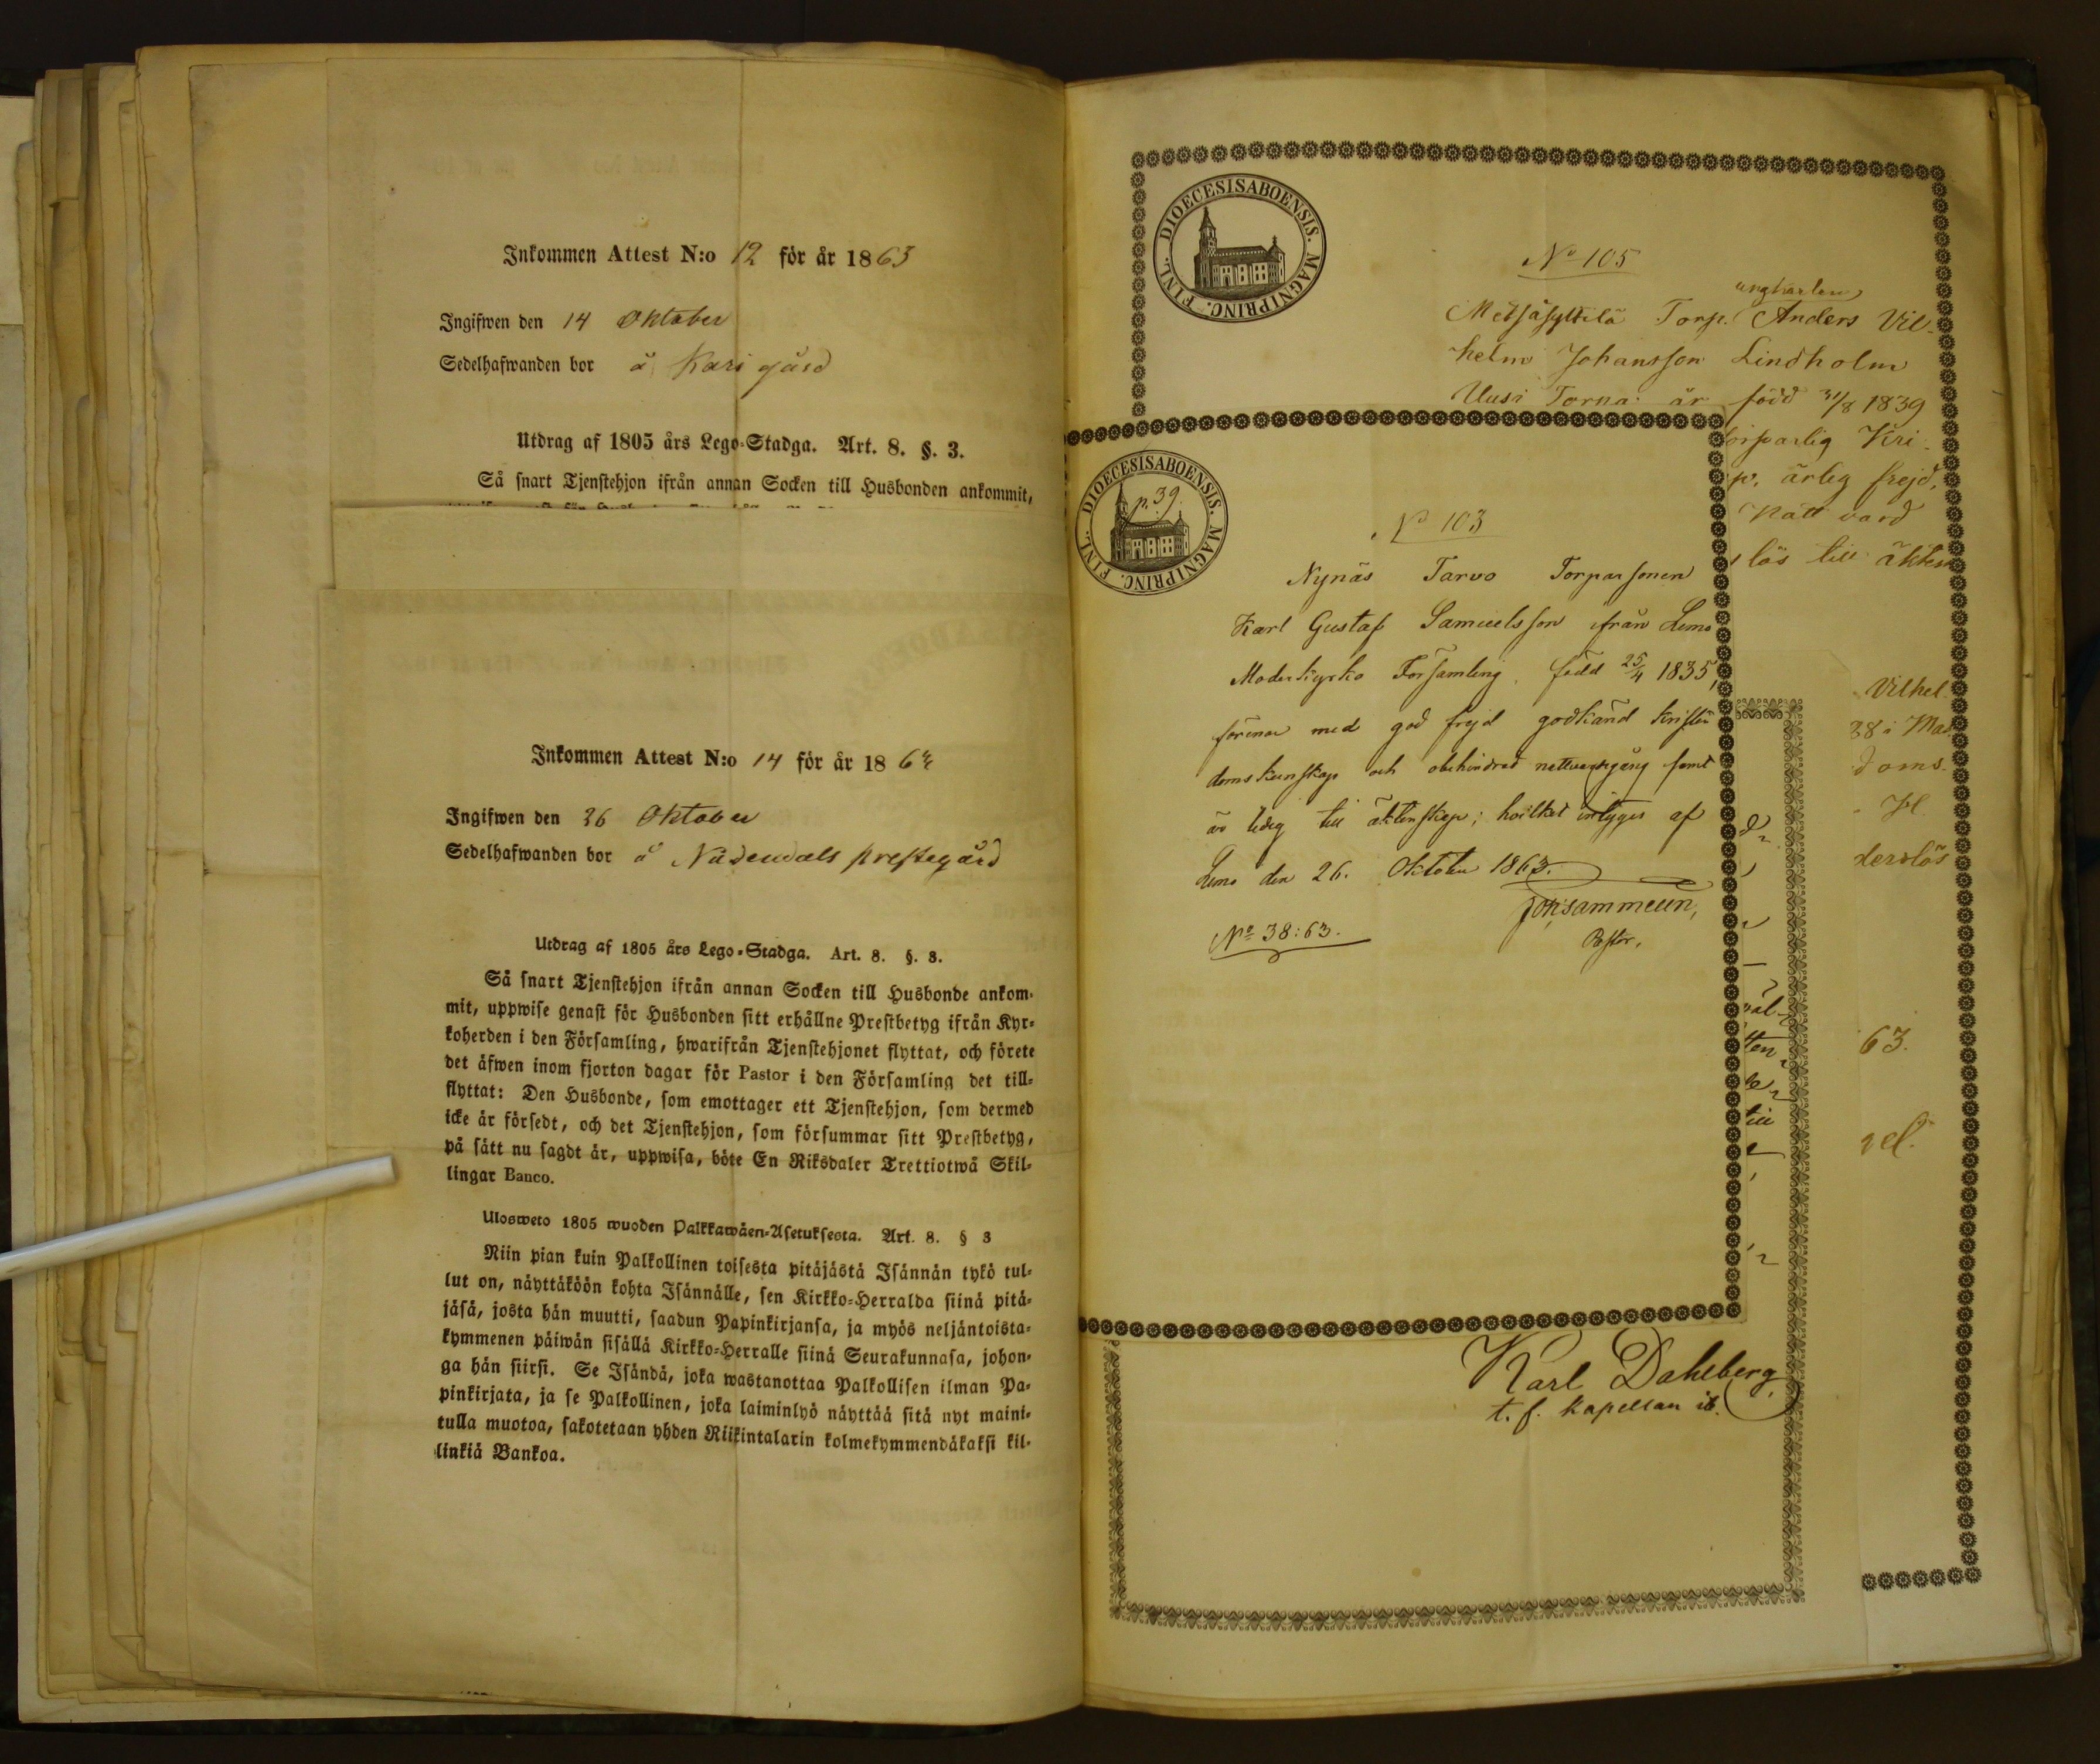 Inkommen Attest N:o 12 för år 1863
Ingifwen den 14 Oktober
Sedelhafwanden bor å Kari gård
Utdrag af 1805 års Lego-Stadga. Art. 8. §. 3.
Så snart Tjenstehjon ifrån annan Socken till Husbonden ankommit,
Inkommen Attest N:o 14 för år 186
Ingifwen den 26 Oktober
Sedelhafwanden bor å Nådendals prestegård
Utdrag af 1805 års Lego-Stadga. Art. 8. §. 3.
Så snart Tjenstehjon ifrån annan Socken till Husbonde ankom-
mit, uppwise genast för Husbonden sitt erhållne Prestbetyg ifrån Kyr-
koherden i den Församling, hwarifrån Tjenstehjonet flyttat, och förete
det äfwen inom fjorton dagar för Pastor i den Församling det till-
flyttat: Den Husbonde, som emottager ett Tjenstehjon, som dermed
icke är försedt, och det Tjenstehjon, som försummar sitt Prestbetyg,
på sätt nu sagdt är, uppwisa, böte En Riksdaler Trettiotwå Skil-
lingar Banco.
Ulosweto 1805 wuoden Palkkawäen-Asetuksesta. Art. 8. § 3
Niin pian kuin Palkollinen toisesta pitäjästä Isännän tykö tul-
lut on, näyttäköön kohta Isännälle, sen Kirkko-Herralda siinä pitä-
jäsä, josta hän muutti, saadun Papinkirjansa, ja myös neljäntoista-
kymmenen päiwän sisällä Kirkko-Herralle siinä Seurakunnasa, johon-
ga hän siirsi. Se Isändä, joka wastanottaa Palkollisen ilman Pa-
pinkirjata, ja se Palkollinen, joka laiminlyö näyttää sitä nyt maini-
tulla muotoa, sakotetaan yhden Riikintalarin kolmekymmendäkaksi kil-
linkiä Bankoa.
DIOECESIS ABOENSIS. MAGNI PRINC. FINL.
No 105
ungkarlen
Metsäkyltilä Torp. Anders Vil-
helm Johansson Lindholm
Uusi Torna är född 31/8 1839
Kri-
ärlig frejd,
Natt vard
lös till äkten
DIOECESIS ABOENSIS. MAGNI PRINC. FINL.
p. 39.
No 103
Nynäs Tarvo Torparsonen
Karl Gustaf Samuelsson ifrån Lemo
Moderkyrko Församling, född 25/4 1835,
förenar med god frejd godkänd kristen
domskunskap och obehindrad nattvardsgång samt
är ledig till äktenskap; hvilket intygas af
Lemo den 26. Oktober 1863.
Pastor.
No 38:63.
Vilhel
38 i Mas
doms-
derslös
till
63.
Karl Dahlberg
t. f. Kapellan ib.